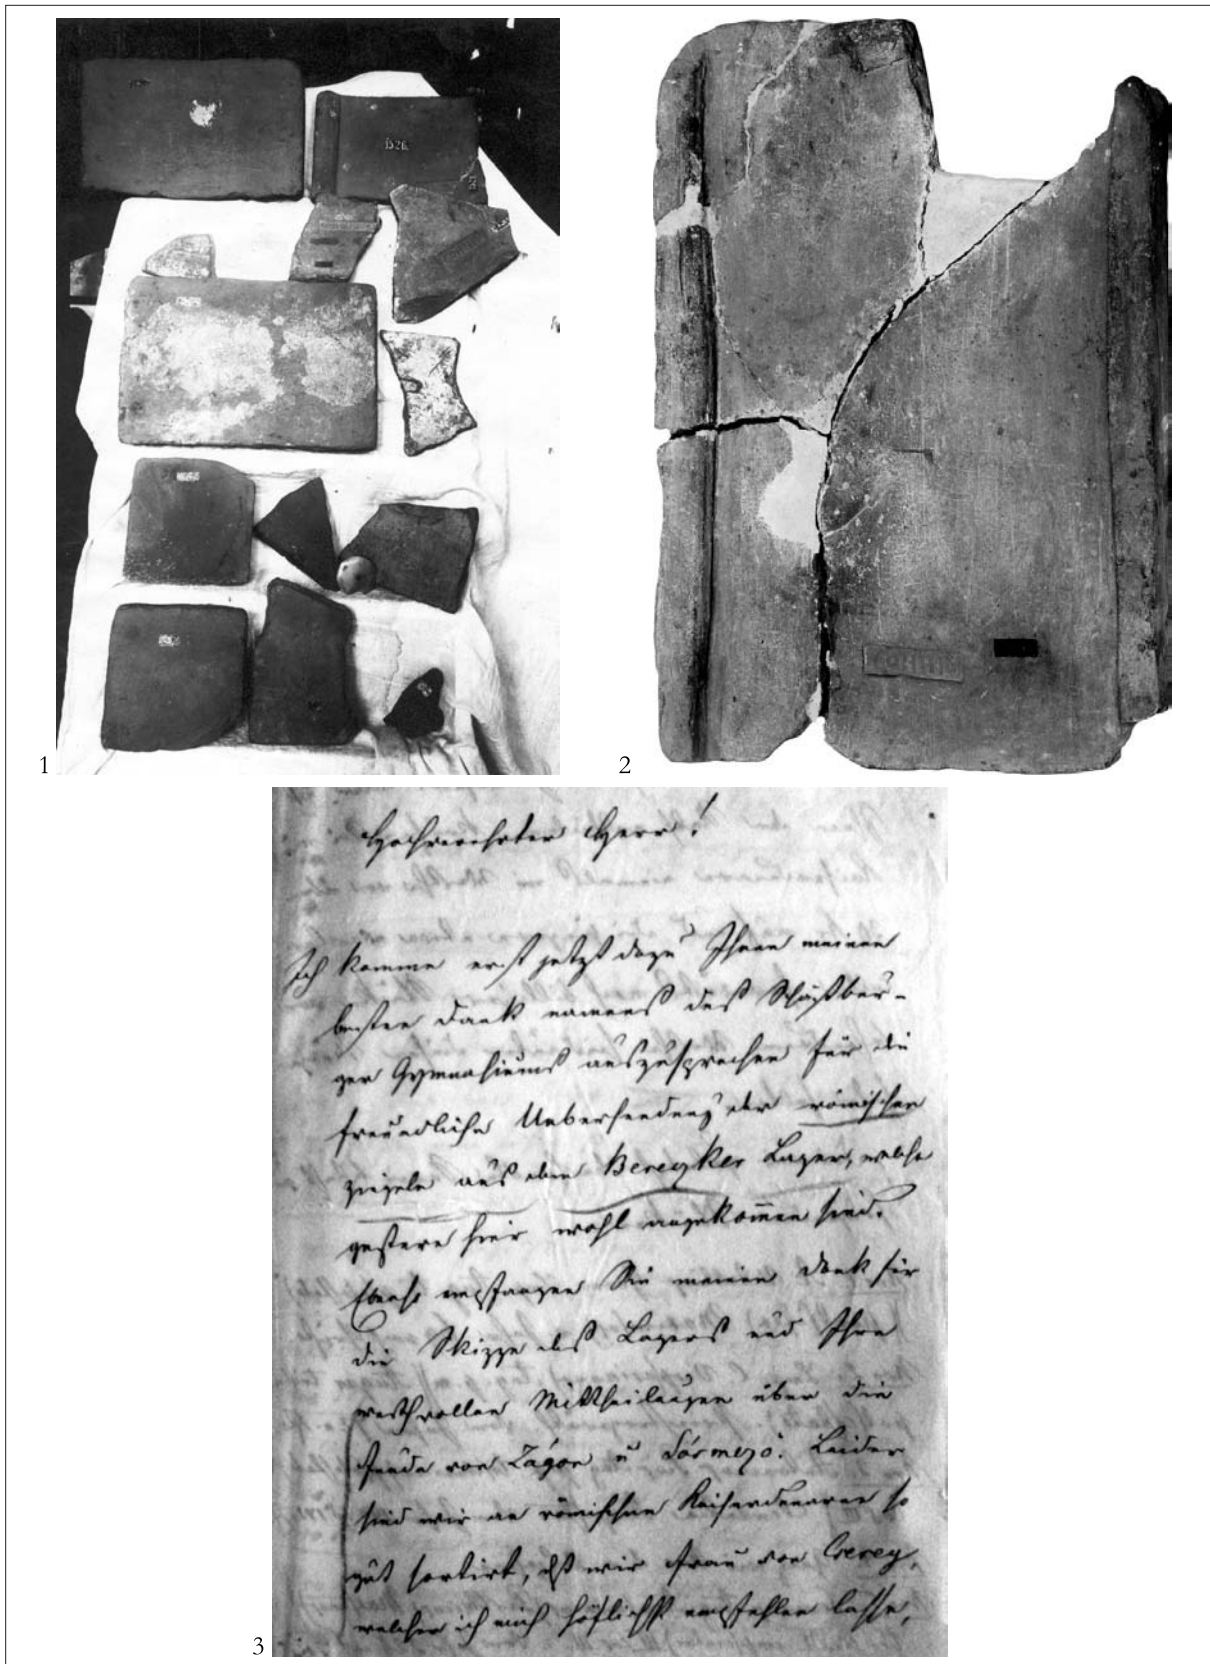 1526
1
2
Hochverehrter Herr!
Ich komme erst jetzt dazu Ihnen meinen
besten Dank namens des Schäßbur-
ger Gymnasiums auszusprechen für die
freundliche Uebersendung der römischen
Ziegeln aus dem Bereczker Lager, welche
gestern hier wohl angekommen sind.
Ebenso empfangen Sie meinen Dank für
die Skizze des Lagers und Ihre
werthvollen Mittheilungen über die
Funde von Zágon u Sósmező. Leider
sind wir an römischen Kaiserdenaren so
gut sortirt, dß wir Frau von Cserey,
welcher ich mich höflichst empfehlen lasse,
3